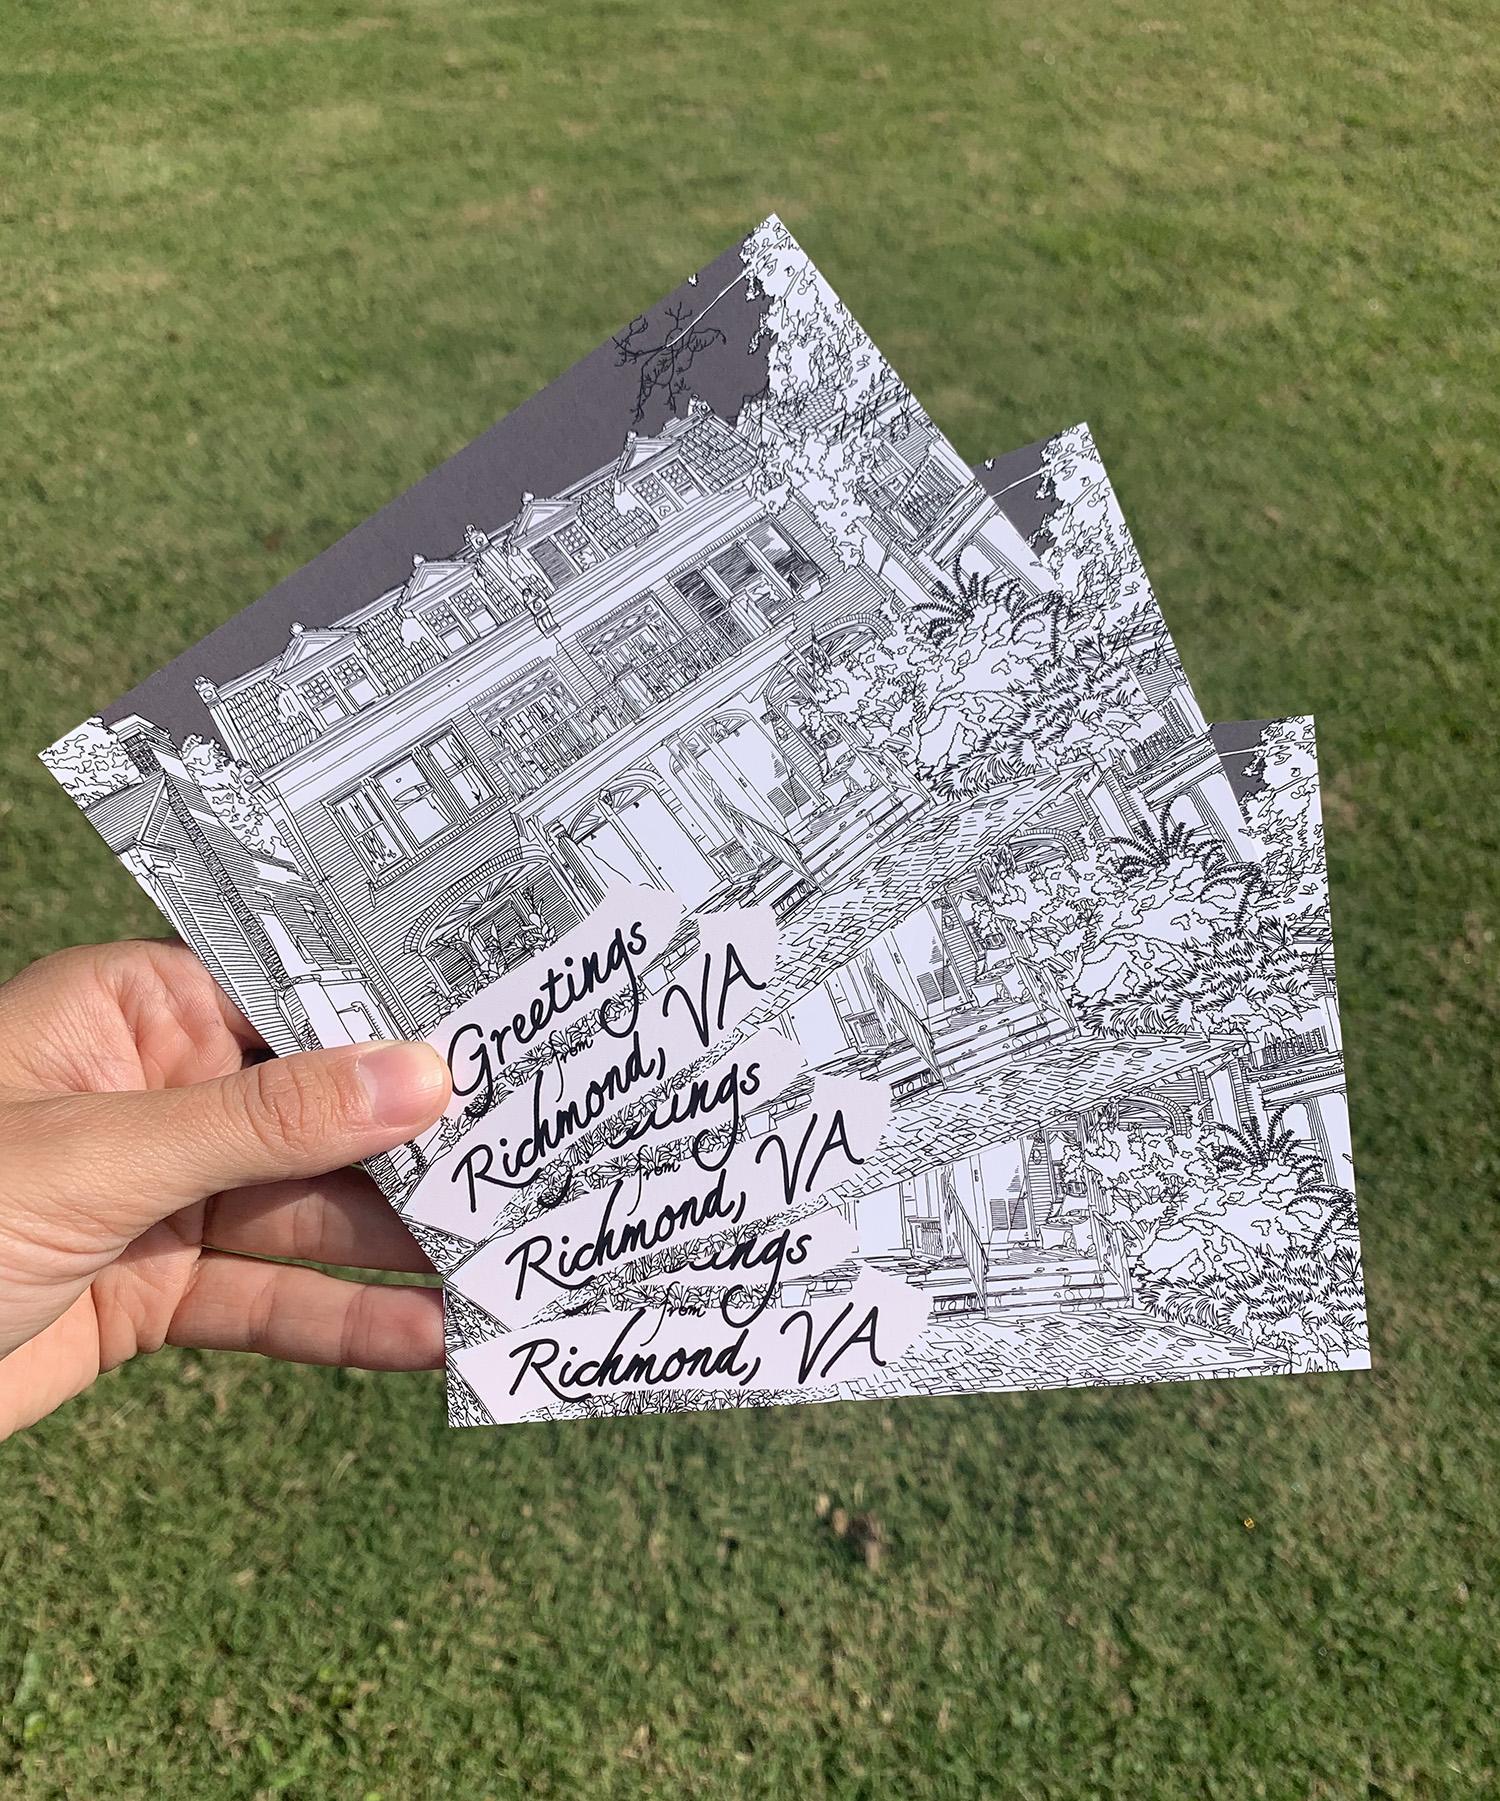 Greetings
from
Richmond, VA
ings
from
Richmond, VA
ings
from
Richmond, VA